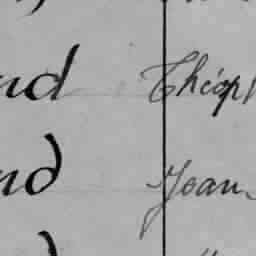 nd Théop
nd Jean